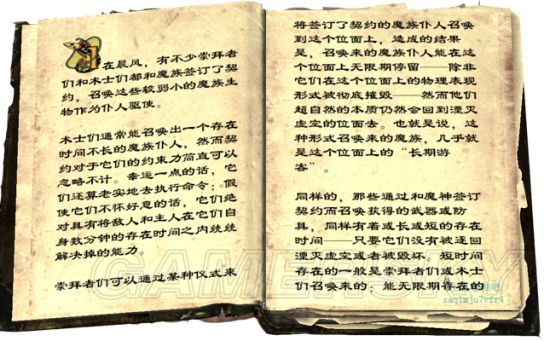 在晨风，有不少崇拜者
们和术士们都和魔族签订了契
约，召唤这些较弱小的魔族生
物作为仆人驱使。
术士们通常能召唤出一个存在
时间不长的魔族仆人，然而契
约对于它们的约束力简直可以
忽略不计。幸运一点的话，它
们还算老实地去执行命令；假
使它们不怀好意的话，它们绝
对具有将敌人和主人在它们自
身数分钟的存在时间之内统统
解决掉的能力
崇拜者们可以通过某种仪式来
将签订了契约的魔族仆人召唤
到这个位面上，造成的结果
是，召唤来的魔族仆人能在这
个位面上无限期停留——除非
它们在这个位面上的物理表现
形式被彻底摧毁——然而他们
超自然的本质仍然会回到湮灭
虚空的位面去。也就是说，这
种形式召唤来的魔族，几乎就
是这个位面上的“长期游
客”。
同样的，那些通过和魔神签订
契约而召唤获得的武器或防
具，同样有着或长或短的存在
时间——只要它们没有被逐回
湮灭虚空或者被毁坏。短时间
存在的一般是崇拜者们或术士
们召唤来的；能无限期存在的
GAMERSKY
zaqimju7vfr4